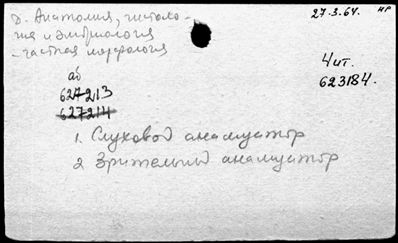 27.3.64. нр
д. Анатомия, гистоло-
гия и эмбриология
- частная морфология
Чит.
623184.
аб
627213
627214
1. Слуховой анализатор
2 Зрительный анализатор